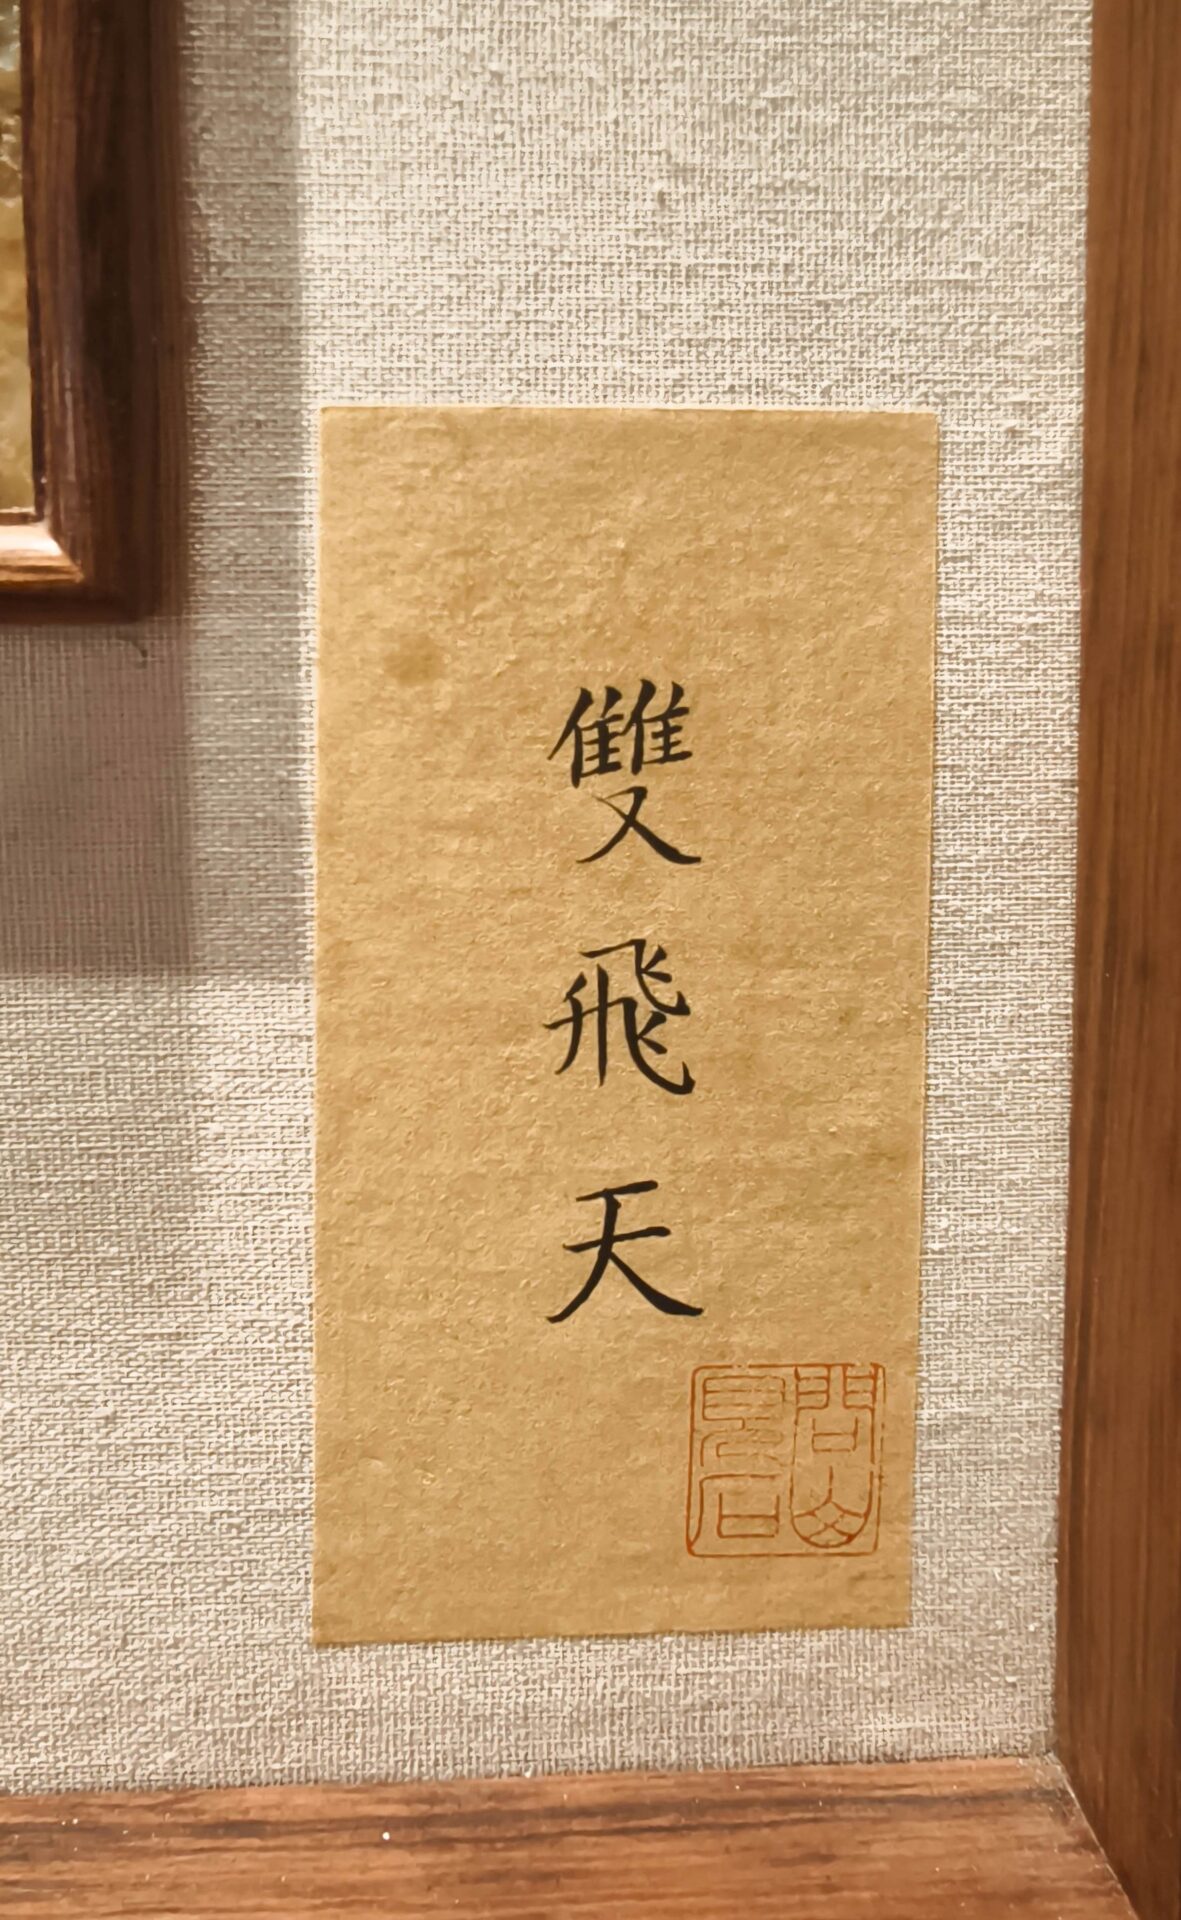 雙飛天